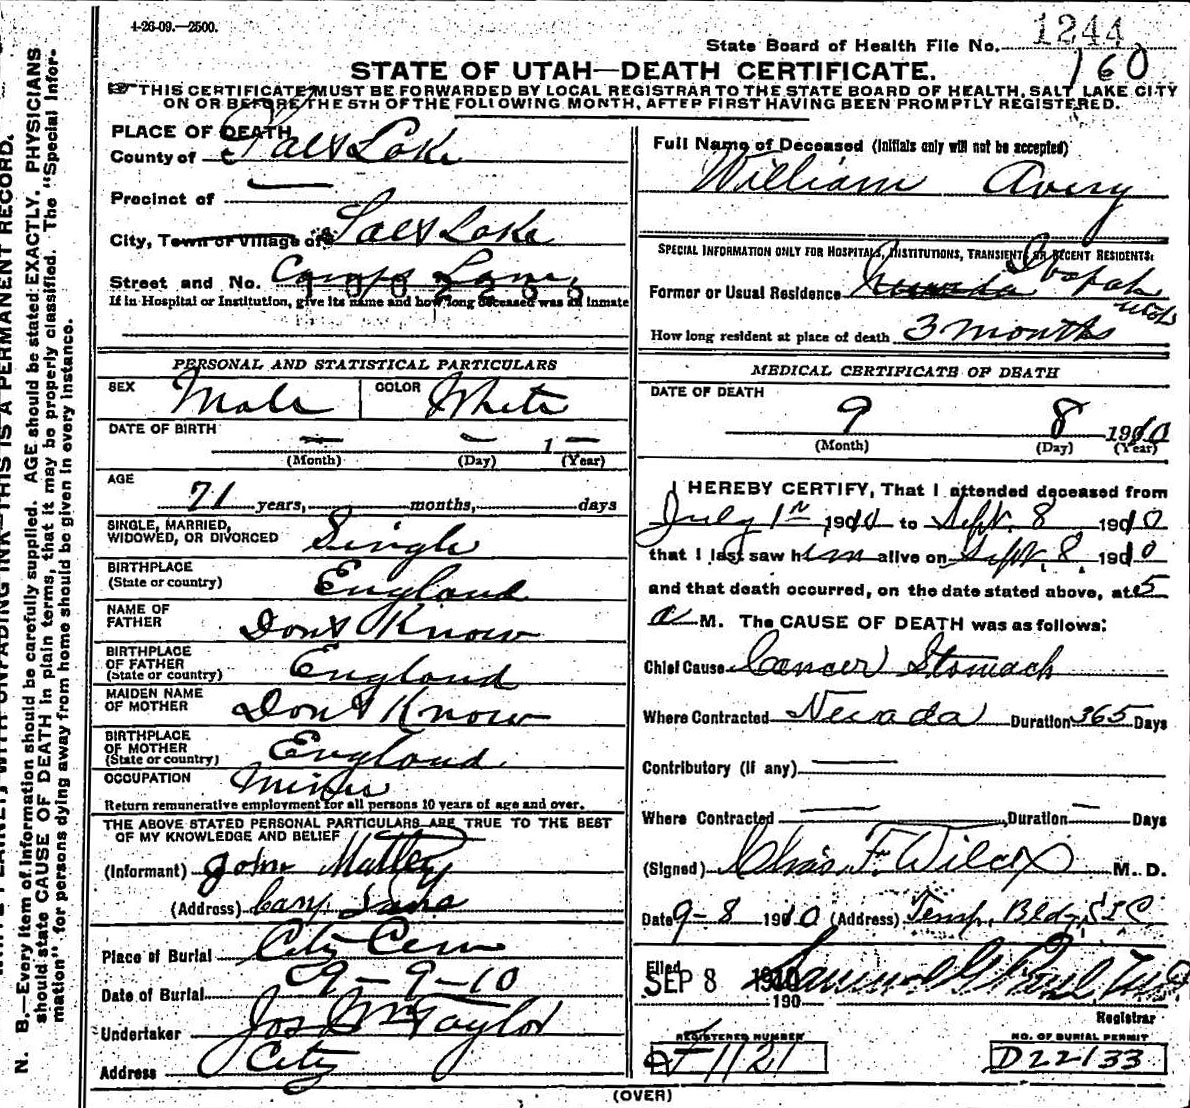 4-26-09.—2500.
1244
State Board of Health File No.
160
STATE OF UTAH—DEATH CERTIFICATE.
THIS CERTIFICATE MUST BE FORWARDED BY LOCAL REGISTRAR TO THE STATE BOARD OF HEALTH, SALT LAKE CITY
ON OR BEFORE THE 5TH OF THE FOLLOWING MONTH, AFTER FIRST HAVING BEEN PROMPTLY REGISTERED.
PLACE OF DEATH
County of Salt Lake
Precinct of —
City, Town or Village of Salt Lake
Street and No.
If in Hospital or Institution, give its name and how long deceased was an inmate
PERSONAL AND STATISTICAL PARTICULARS
SEX Male COLOR White
DATE OF BIRTH — — 1 —
(Month) (Day) (Year)
AGE
71 years, months, days
SINGLE, MARRIED,
WIDOWED, OR DIVORCED Single
BIRTHPLACE
(State or country) England
NAME OF
FATHER Dont Know
BIRTHPLACE
OF FATHER
(State or country) England
MAIDEN NAME
OF MOTHER Dont Know
BIRTHPLACE
OF MOTHER
(State or country) England
OCCUPATION Miner
Return remunerative employment for all persons 10 years of age and over.
THE ABOVE STATED PERSONAL PARTICULARS ARE TRUE TO THE BEST
OF MY KNOWLEDGE AND BELIEF
(Informant) John
(Address)
Place of Burial City Cem
Date of Burial 9-9-10
Undertaker Jos Wm Taylor
Address City
Full Name of Deceased (Initials only will not be accepted)
William Avery
SPECIAL INFORMATION ONLY FOR HOSPITALS, INSTITUTIONS, TRANSIENTS OR RECENT RESIDENTS:
Former or Usual Residence Nevada Ibapah
Utah
How long resident at place of death 3 months
MEDICAL CERTIFICATE OF DEATH
DATE OF DEATH
9 8 1910
(Month) (Day) (Year)
I HEREBY CERTIFY, That I attended deceased from
July 1st, 1910 to Sept. 8 1910
that I last saw him alive on Sept. 8, 1910
and that death occurred, on the date stated above, at 5
a M. The CAUSE OF DEATH was as follows:
Chief Cause Cancer Stomach
Where Contracted Nevada Duration 365 Days
Contributory (if any) —
Where Contracted — Duration — Days
(Signed) Chas F. Wilcox M. D.
Date 9-8 1910 (Address) Temp. Bldg. SLC
Filed
SEP 8 1910 Samuel G Paul M.D.
190
Registrar
REGISTERED NUMBER
NO. OF BURIAL PERMIT
D22133
(OVER)
N. B.—Every item of information should be carefully supplied. AGE should be stated EXACTLY. PHYSICIANS
should state CAUSE OF DEATH in plain terms, that it may be properly classified. The "Special Infor-
mation" for persons dying away from home should be given in every instance.